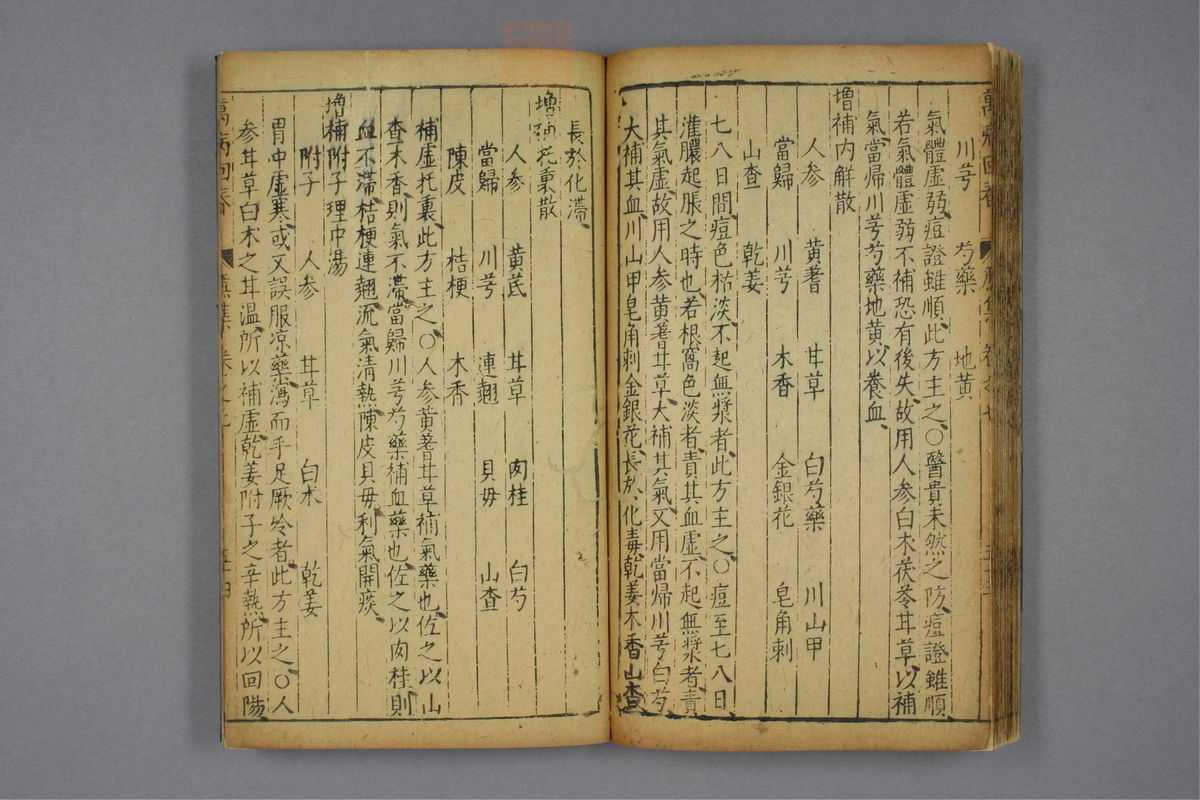 川芎 芍藥 地黃
氣體虛弱痘證雖順此方主之〇醫貴未然之防痘證雖順
若氣體虛弱不補恐有後失故用人參白朮茯苓甘草以補
氣當帰川芎芍藥地黃以養血
增補內解散
人參 黃耆 甘草 白芍藥 川山甲
當歸 川芎 木香 金銀花 皂角刺
山查 乾姜
七八日間痘色枯淡不起無漿者此方主之〇痘至七八日
灌膿起脹之時也若根窩色淡者責其血虛不起無漿者責
其氣虛故用人參黃耆甘草大補其氣又用當帰川芎白芍
大補其血川山甲皂角刺金銀花長於化毒乾姜木香山查
長於化滯
增補托裏散
人參 黃芪 甘草 肉桂 白芍
當歸 川芎 連翹 貝母 山查
陳皮 桔梗 木香
補虛托裏此方主之〇人參黃耆甘草補氣藥也佐之以山
查木香則氣不滯當歸川芎芍藥補血藥也佐之以肉桂則
血不滯桔梗連翹流氣清熱陳皮貝母利氣開痰
增補附子理中湯
附子 人參 甘草 白朮 乾姜
胃中虛寒或又誤服凉藥瀉而手足厥冷者此方主之〇人
參甘草白朮之甘溫所以補虛乾姜附子之辛熱所以回陽
萬病回春